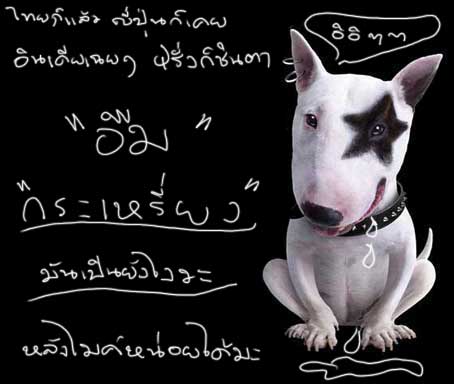 ไทยก็แล้ว ญี่ปุ่นก็เคย
อิอิ ๆๆ
อินเดียเฉยๆ ฝรั่งก็ชินตา
"อึ๋ม"
"กระเหรี่ยง"
มันเป็นยังไงวะ
หลังไมค์หน่อยได้มะ